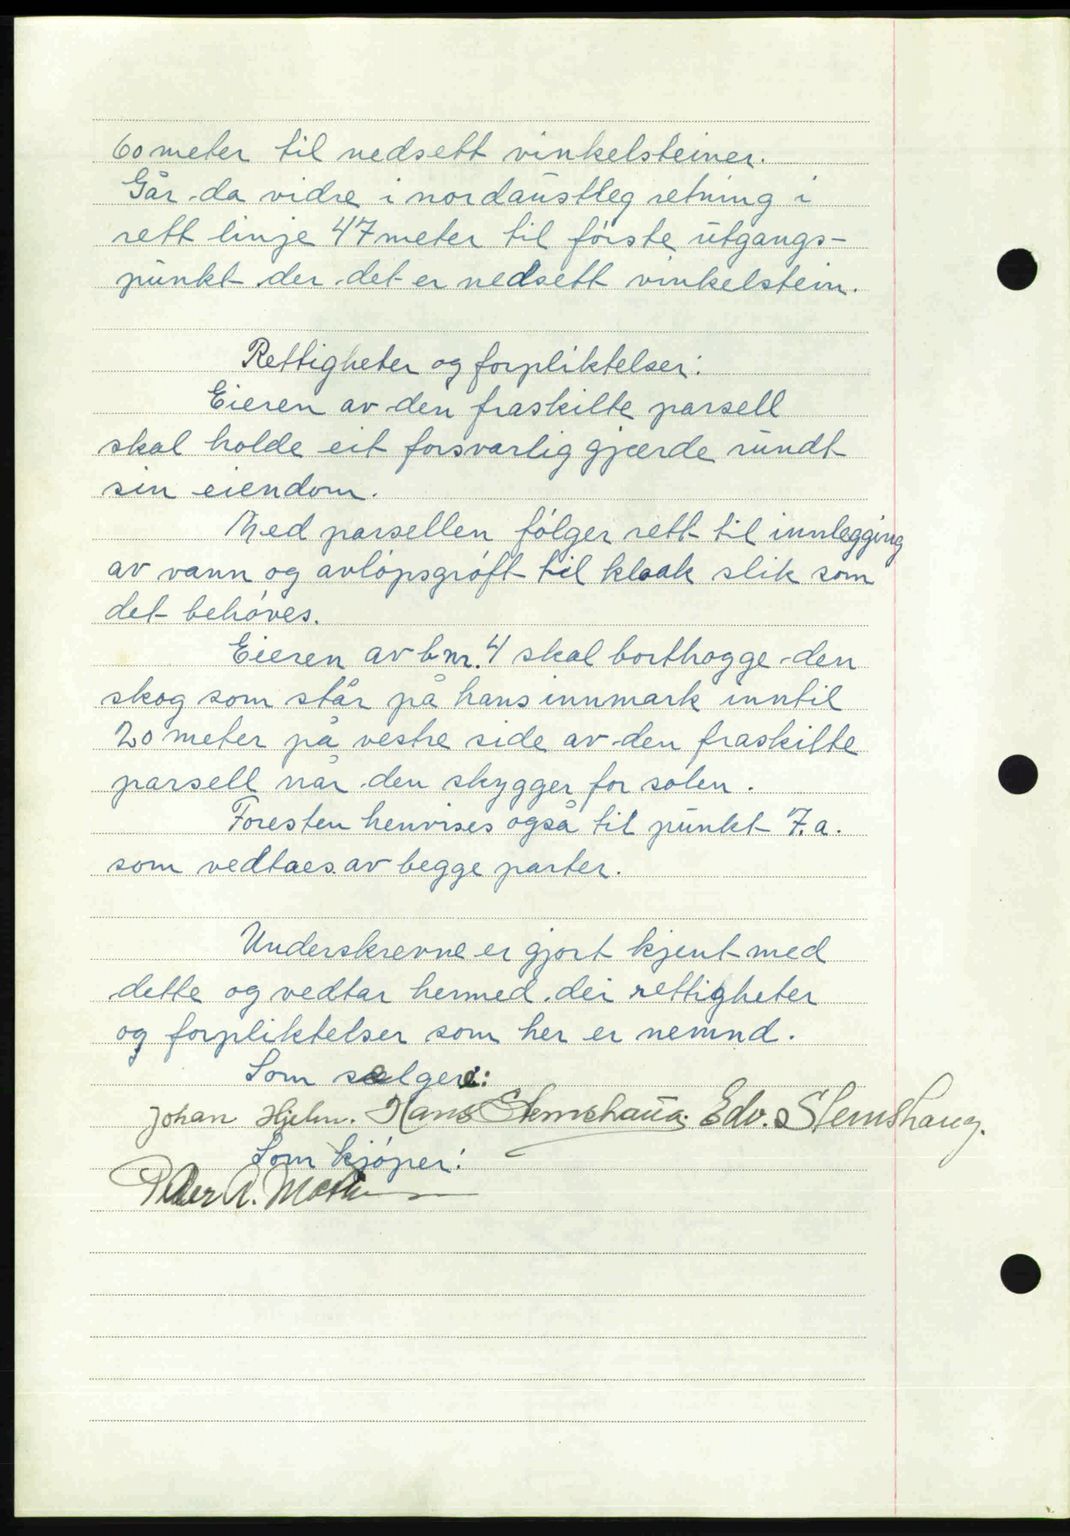 60 meter til nedsett vinkelsteiner.
Går da vidre i nordaustleg retning i
rett linje 47 meter til første utgangs-
punkt der det er nedsett vinkelstein.
Rettigheter og forpliktelser:
Eieren av den fraskilte parsell
skal holde eit forsvarlig gjærde rundt
sin eiendom.
Med parsellen følger rett til innlegging
av vann og avløpsgrøft til kloak slik som
det behøves.
Eieren av bnr. 4 skal borthogge den
skog som står på hans innmark inntil
20 meter på vestre side av den fraskilte
parsell når den skygger for solen.
Foresten henvises også til punkt 7.a.
som vedtaes av begge parter.
Underskrevne er gjort kjent med
dette og vedtar hermed dei rettigheter
og forpliktelser som her er nemnd.
Som selgere:
Johan Hjelm. Hans Stemshaug. Edv. Stemshaug.
Som kjøper:
Peder A.